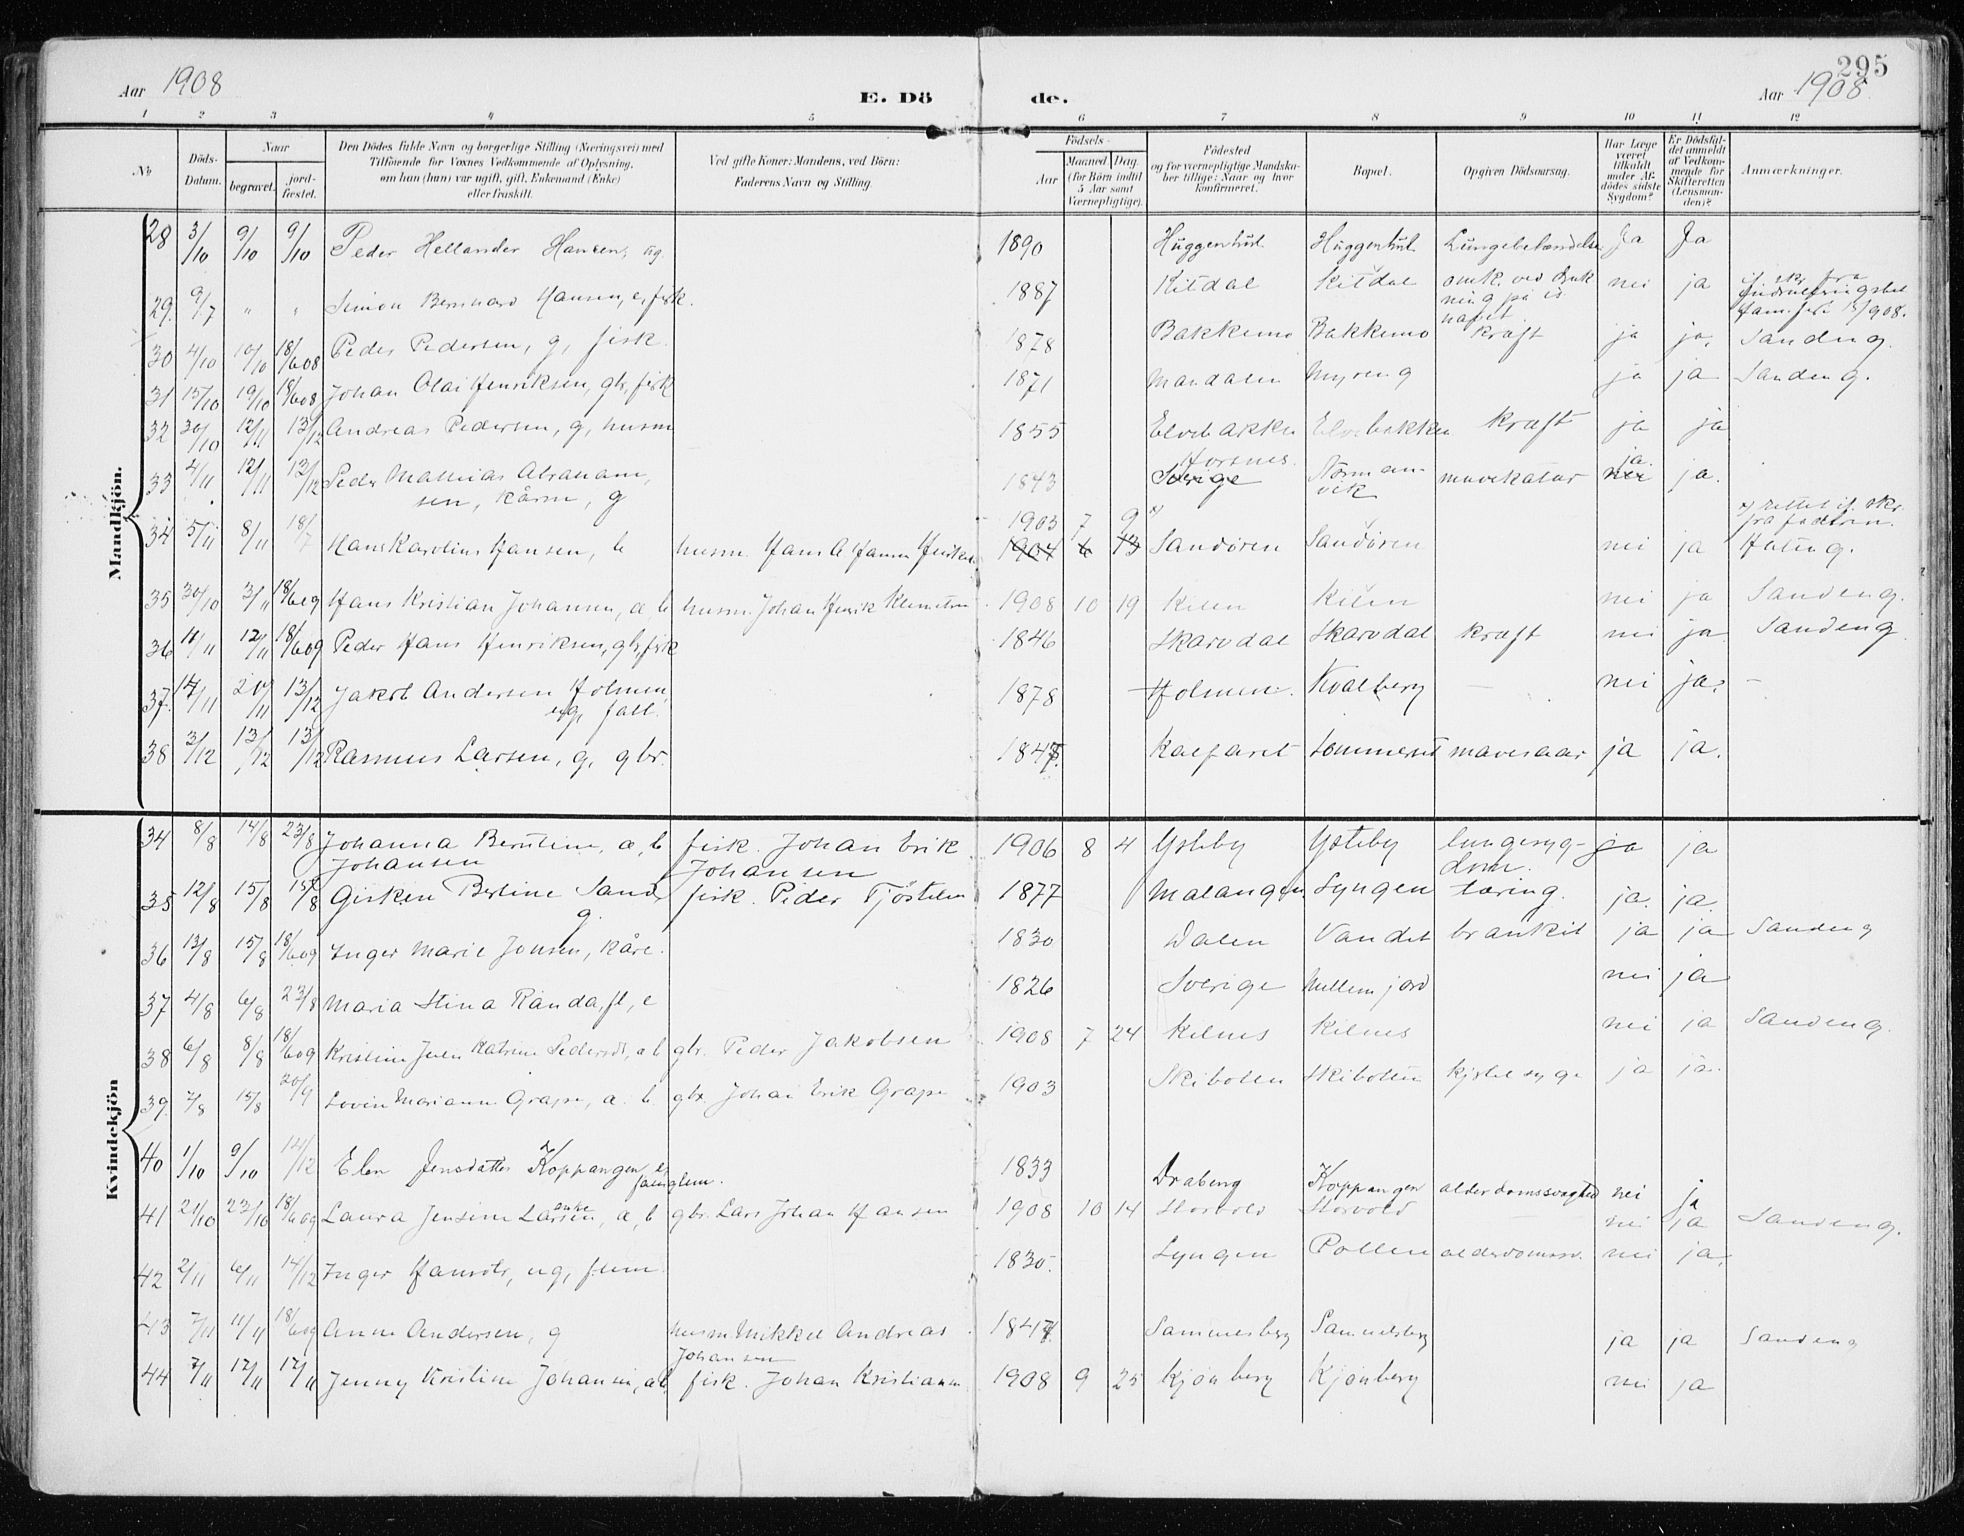 295
Aar 1908
E. Dö
de.
Aar 1908
1 2 3 4 5 6 7 8 9 10 11 12
No
Döds-
Datum.
Naar
begravet.
jord-
fæstet.
Den Dödes fulde Navn og borgerlige Stilling (Næringsvei) med
Tilföiende for Voxnes Vedkommende af Oplysning,
om han (hun) var ugift, gift, Enkemand (Enke)
eller fraskilt.
Ved gifte Koner: Mandens, ved Börn:
Faderens Navn og Stilling.
Födsels-
Aar
Maaned. Dag.
(for Börn indtil
5 Aar samt
Værnepligtige).
Födested
og for værnepligtige Mandska-
ber tillige: Naar og hvor
konfirmeret.
Bopæl.
Opgiven Dödsaarsag.
Har Læge
været
tilkaldt
under Af-
dödes sidste
Sygdom?
Er Dödsfal-
det anmeldt
af Vedkom-
mende for
Skifteretten
(Lensman-
den)?
Anmærkninger.
Mandkjön.
28 3/10 9/10 9/10 Peder Hellander Hansen, ug 1890 Huggenhut Huggenhut Lungebetændelse Ja Ja
29. 9/7 " " Simon Bernhard Hansen, e, fisk. 1887 Kitdal Kitdal omk. ved druk
ning på is
havet. nei ja
30 4/10 10/10 18/6 08 Peder Pedersen, g, fisk. 1878 Bakkemo Bakkemo kræft ja ja. Sandeng.
31 15/10 19/10 18/6 08 Johan Olai Henriksen, gbr, fisk 1871 Mandalen Myreng ja ja Sandeng.
32 30/10 12/11 13/12 Andreas Pedersen, g, husm 1855 Elvebakken Elvebakken kræft ja ja
33 4/11 12/11 13/12 Peder Mathias Abraham
sen, kårm, g 1843 Horsnes.
Sverige Norman-
vik mavekatar ja.
nei ja.
34 5/11 8/11 18/7 Hans Karolius Hansen, b husm. Hans A Hansen Henriksen 1903 7 9
1904 6 13 Sandören Sandören nei ja x) rettet if. skr.
fra fadren.
35 30/10 3/11 18/6 09 Hans Kristian Johansen, a b husm. Johan Henrik Klemetsen 1908 10 19 Kilen Kilen nei ja Sandeng.
36 11/11 12/11 18/6 09 Peder Hans Henriksen, gbr, fisk 1846 Skarvdal Skarvdal kræft nei ja Sandeng
37. 14/11 20/11 13/12 Jakob Andersen Holmen
ug, fatt. 1878 Holmen. Kvalberg — nei ja. —
38 3/12 13/12 13/12 Rasmus Larsen, g, gbr. 1847 Kalfaret Sommerset mavesaar ja ja.
Kvindekjön
34 8/8 14/8 23/8 Johanna Berntine, a, b
Johansen fisk. Johan Erik
Johansen 1906 8 4 Ysteby Ysteby lungesyg-
dom. ja ja
35 12/8 15/8 15/8 Gisken Berline Sand
g. fisk. Peder Tjöstelsen 1877 Malangen Lyngen tæring. ja. ja.
36 13/8 15/8 18/6 09 Inger Marie Jonsen, kåre. 1830 Dalen Vandet brankit ja ja Sandeng
37 4/8 6/8 23/8 Maria Stina Randa, fl, e 1826 Sverige Mellemjord nei ja
38 6/8 8/8 18/6 09 Kristine Jensen Katrine Pedersdt, a b gbr. Peder Jakobsen 1908 7 24 Kilnes Kilnes nei ja Sandeng.
39. 7/8 15/8 20/9 Lovin Mariann Grape, a. b. gbr. Johan Erik Grape 1903 Skiboten Skiboten kjertelsyge ja ja.
40 1/10 9/10 14/12 Elen Jensdatter Koppangen, e,
fanglem. 1833 Draberg Koppangen alderdomssvaghed nei ja
41 21/10 23/10 18/6 09 Laura Jensine Larsen, a, b gbr. Lars Johan Hansen 1908 10 14 Storvold Storvold nei ja Sandeng.
42 2/11 6/11 14/12 Inger Hansdtr, ug, flem. 1830. Lyngen Pollen alderdomssv. nei ja.
43 7/11 11/11 18/6 09 Anne Andersen, g husm. Mikkel Andreas
Johansen 1847 Sammesberg Sammesberg ja ja Sandeng
44 7/11 12/11 12/11 Jenny Kristine Johanni, a b fisk. Johan Kristiann 1908 9 25 Kjönberg Kjönberg nei ja